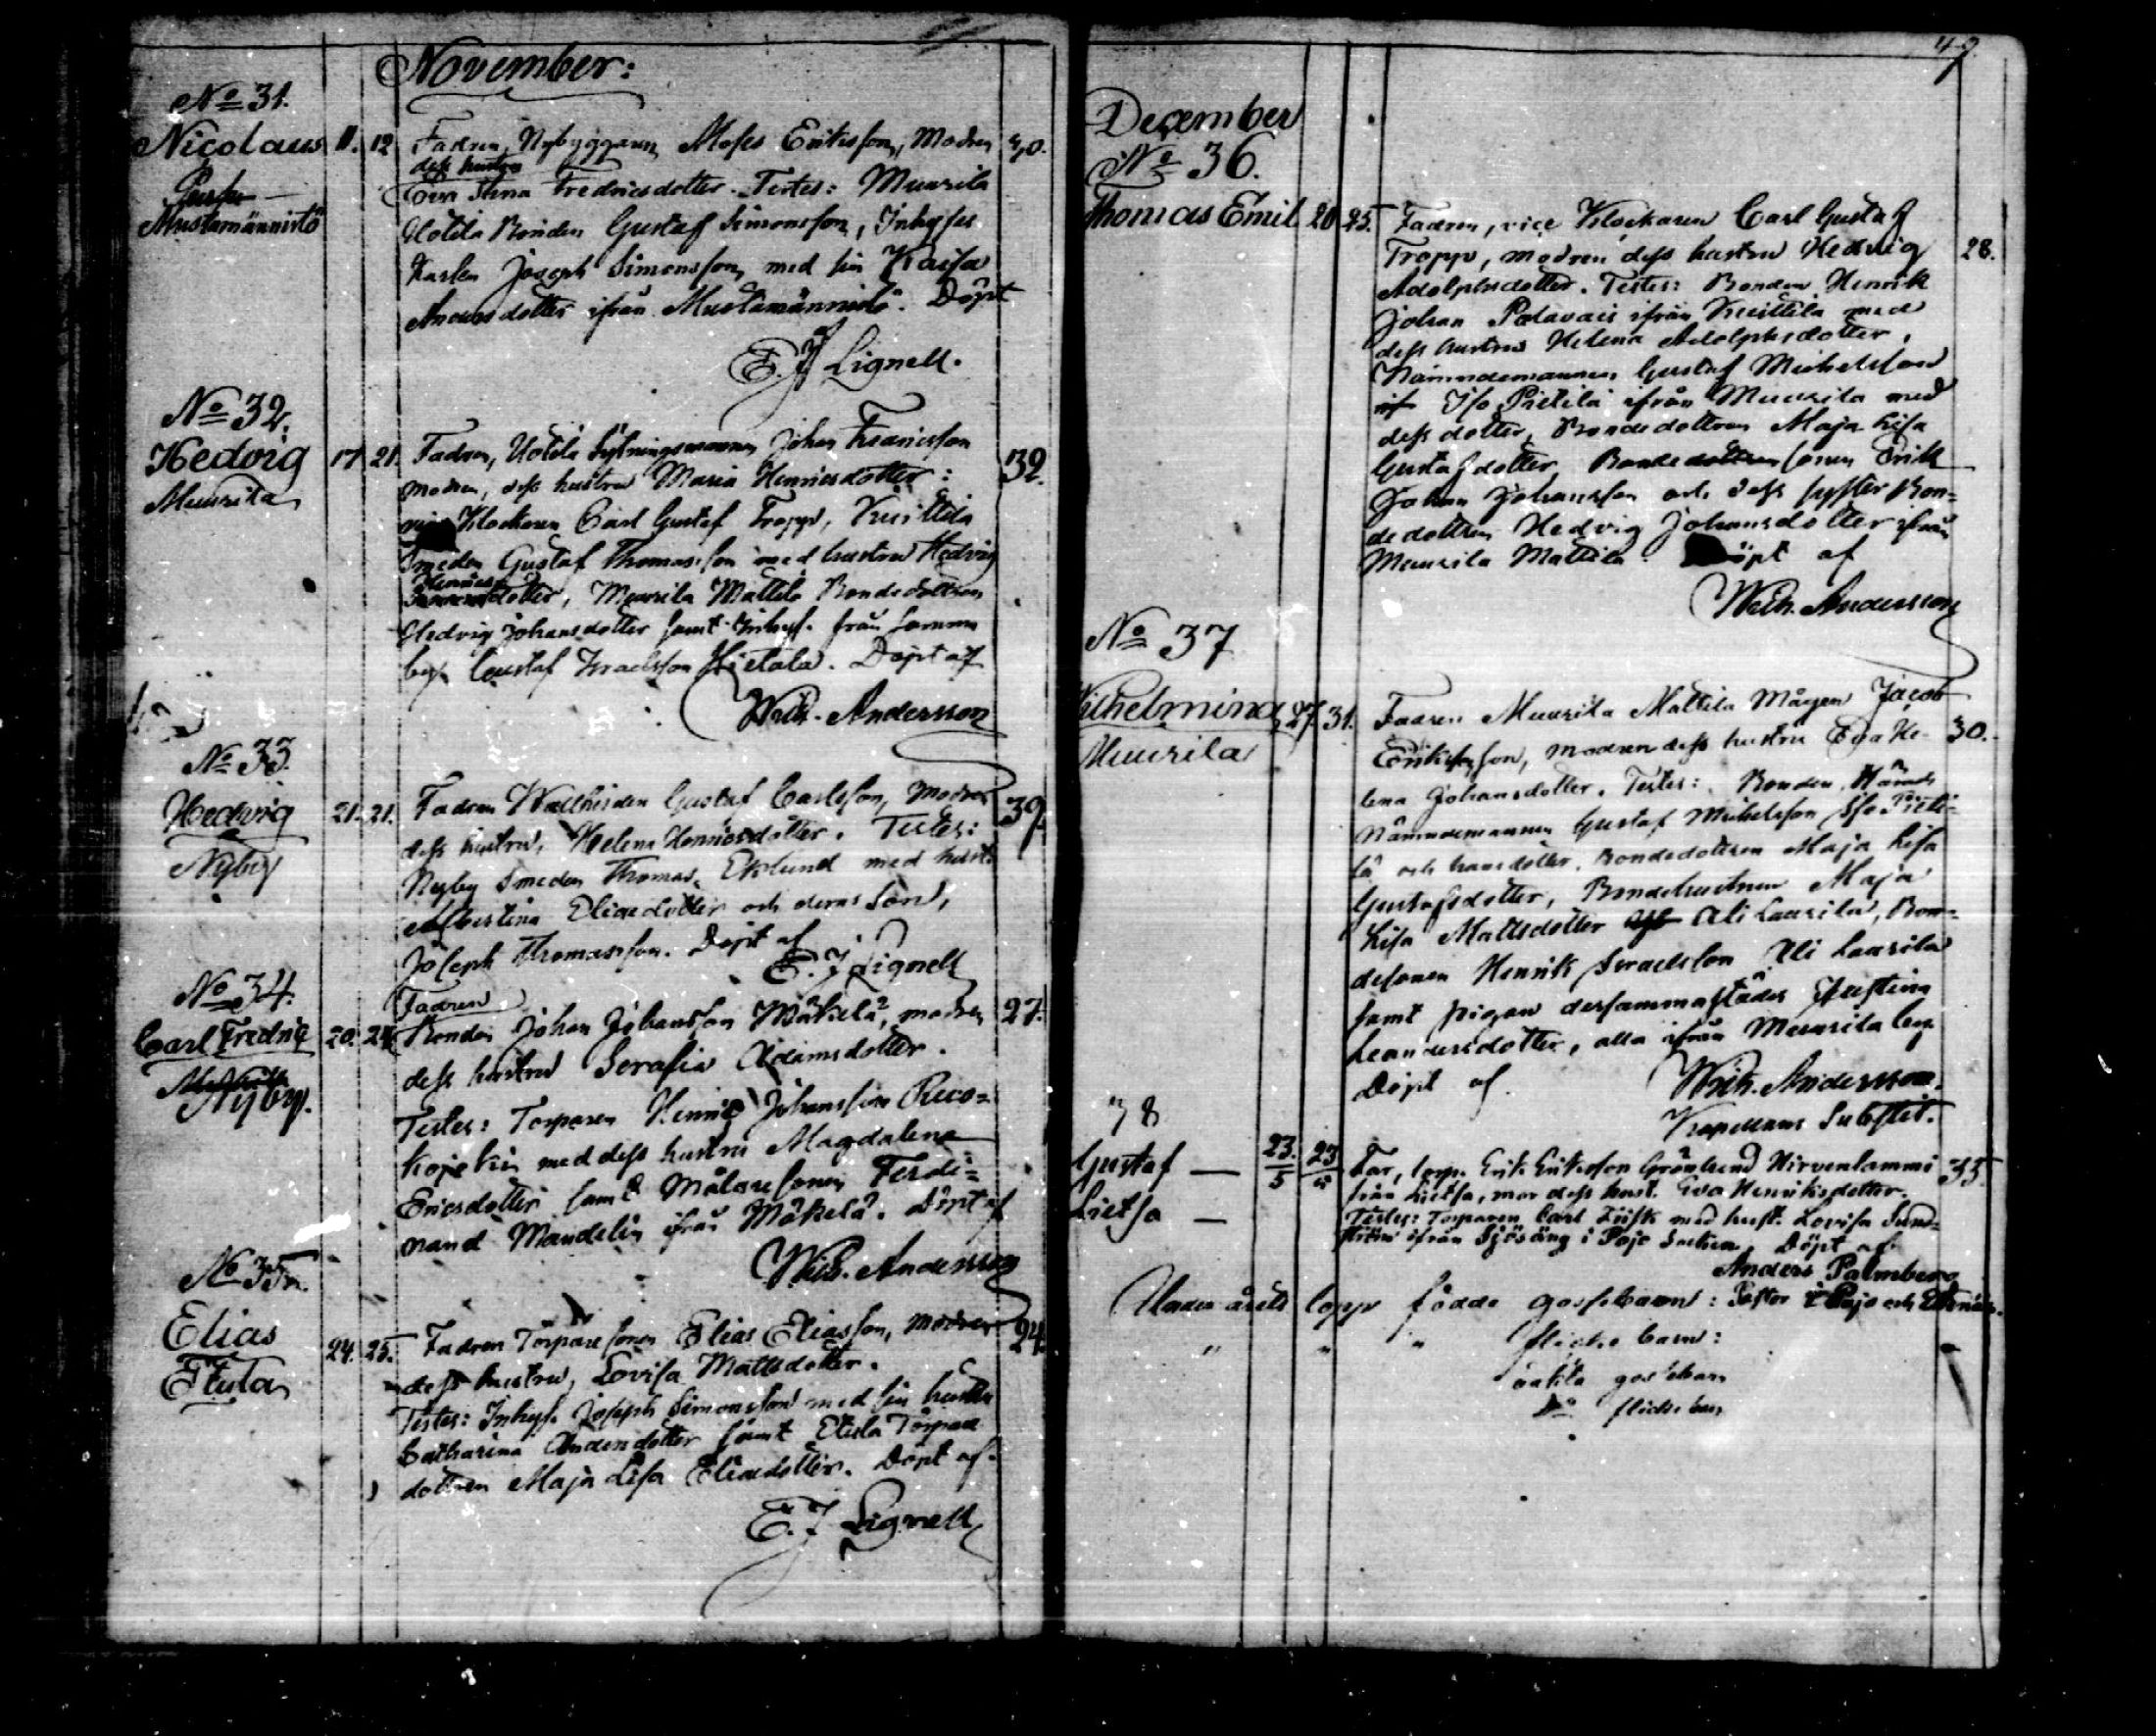 November:
No 31.
Nicolaus 11. 12 Fadren, Nybyggaren Moses Eriksson, Modren 40.
dess hustru
Eva Stina Fredricsdotter. Testes: Muurila
Mustamännistö
Uotila Bonden Gustaf Simonsson, Inhyses
Karlen Joseph Simonsson, med sin Kaisa
Andersdotter ifrån Mustamännistö. Döpt
E. J Lignell.
No 32.
Hedvig 17 21. Fadren, Uotila Sytningsmannen Johan Fransson
Muurila
modren, dess hustru Maria Henricsdotter: 32.
Klockaren Carl Gustaf Tropp, Knuttila
Smeden Gustaf Thomasson med hustru Hedvig
Henricsdotter, Muurila Mattila Bondedottren
Hedvig Johansdotter samt Inhys. från samma
by Gustaf Israelsson Hietala. Döpt af
Wilh. Andersson
No 33.
Hedvig 21. 21. Fadren Gustaf Carlsson, Modren 39.
Nyby
dess hustru, Helena Henricsdotter. Testes:
Nyby Smeden Thomas Eklund med hust.
Albertina Eliaedotter och deras Son,
Joseph Thomasson. Döpt af
E. J Lignell
No 34.
Fadren
Carl Fredric 20. 24. Bonden Johan Johansson Mäkelä, modren 27.
Nyby.
dess hustru Serafia Adamsdotter.
Testes: Torparen Henric Johansson Ruco-
kojoki med dess hustru Magdalena
Ericsdotter samt Målaresonen Ferdi-
nand Mandelin ifrån Mäkelä. Döpt af
Wilh. Andersson
No 35.
Elias 24. 25. Fadren Torparesonen Elias Eliasson, modren 24.
Etula
dess hustru, Lovisa Mattsdotter.
Testes: Inhys. Joseph Simonsson med sin hustru
Catharina Andersdotter samt Etula Torpare
dottren Maja Lisa Eliaedotter. Döpt af
E. J Lignell
49.
December
No 36.
Thomas Emil 20 25. Fadren, vice Klockaren Carl Gustaf
Tropp, modren dess hustru Hedvig 28.
Adolphsdotter. Testes: Bonden Henrik
Johan Palavais ifrån Knuttila med
dess hustru Helena Adolphsdotter,
Nämndemannen Gustaf Michelsson
Iso Pietilä ifrån Muurila med
dess dotter, Bondedottren Maja Lisa
Gustafsdotter, Bondesonen Erik
Johan Johansson och dess syster Bon-
dedottren Hedvig Johansdotter ifrån
Muurila Mattila. Döpt af
Wilh. Andersson
No 37
Wilhelmina 27 31. Fadren Muurila Mattila Mågen Jacob
Muurila
Eriksson, modren dess hustru Eva He- 30.
lena Johansdotter. Testes: Bonden
Nämndemannen Gustaf Michelsson Iso Pieti-
lä och hans dotter, Bondedottren Maja Lisa
Gustafsdotter, Bondehustrun Maja
Lisa Mattsdotter Ali Laurila, Bon-
desonen Henrik Israelsson Ali Laurila
samt pigan dersammastädes Justina
Leandersdotter, alla ifrån Muurila by
Döpt af Wilh. Andersson.
Kapellans Substit.
38
Gustaf — 23./5 23/5 Far, torp. Erik Eriksson Grönlund Hirvenlammi 35
Lietsa — från Lietsa, mor dess hust. Eva Henriksdotter.
Testes: Torparen Carl med hust. Lovisa Sund-
ström ifrån Sjösäng i Pojo Socken, Döpt af
Anders Palmberg
Under årets lopp födde gossebarn: Pastor i Pojo och Ekenäs.
" " " flickebarn:
oäkta gossebarn
Do flickebarn